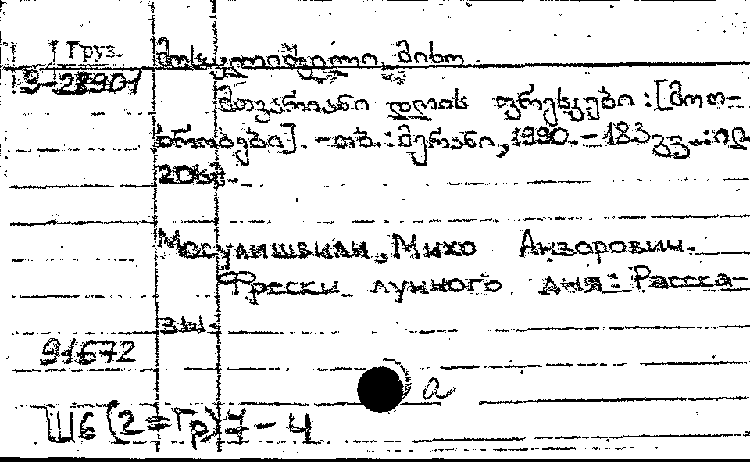 Груз. მოსულიშვილი, მიხო.
3-28901
მთვარიანი დღის ფრესკები : [მოთ-
ხრობები]. - თბ. : მერანი, 1990. - 183 გვ. : ილ
20სმ.
Мосулишвили, Михо Анзорович.
Фрески лунного дня: Расска-
зы.
91672
а
Ш6(2=Гр)7-4